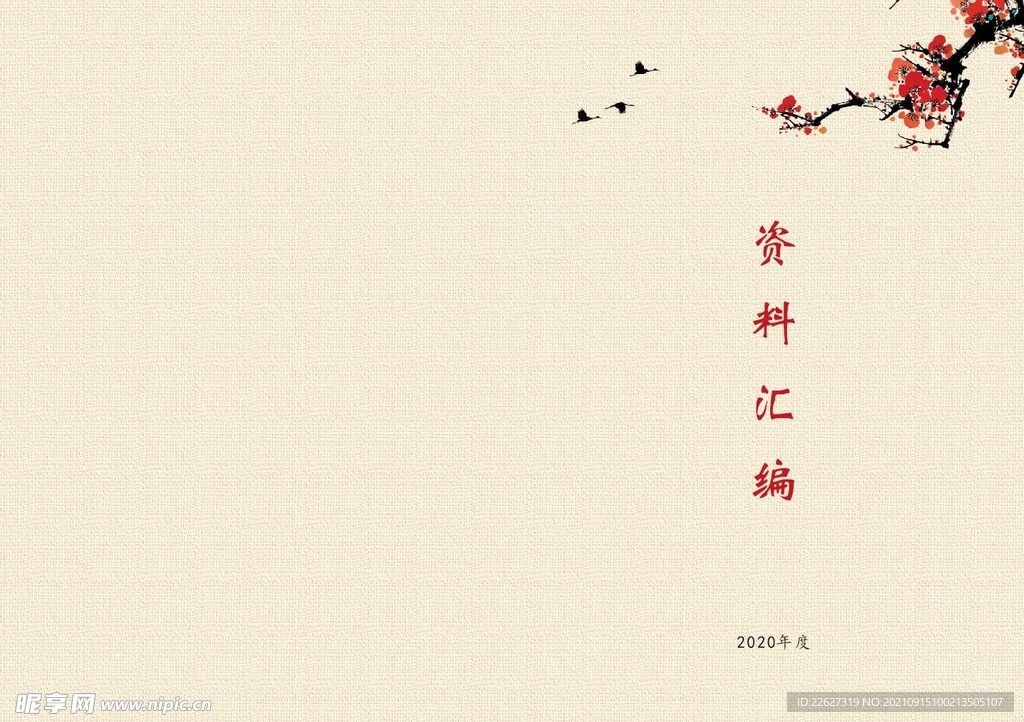 资
料
汇
编
2020年度
昵享网 www.nipic.cn
ID:22627319 NO:20210915100213505107